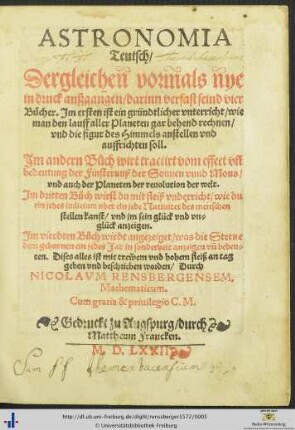 ASTRONOMIA
Teutsch/
Dergleichen vormals nye
in druck außgangen/darinn verfast seind vier
Bücher. Im ersten ist ein gründtlicher vnterricht/wie
man den lauff aller Planeten gar behend rechnen/
vnd die figur des Himmels anstellen vnd
auffrichten soll.
Im andern Bůch wirt tractirt vom effect vñ
bedeutung der Finsternuß der Sonnen vnnd Mons/
vnd auch der Planeten der reuolution der welt.
Im dritten Bůch wirst du mit fleiß vnderricht/wie du
ein jedes iudicium vber ein jede Natiuitet des menschen
stellen kanst/ vnd jm sein glück vnd vn-
glück anzeigen.
Im vierdten Bůch wirdt angezeiget/was die Sterne
dem gebornen ein jedes Jar in sonderheit anzeigen vñ bedeu-
ten. Dises alles ist mit trewem vnd hohem fleiß an tag
geben vnd beschriben worden/ Durch
NICOLAVM RENSBERGERVM,
Mathematicum.
Cum gratia & priuilegio C. M.
Gedruckt zu Augspurg/durch
Mattheum Francken.
M. D. LXXII
Sum
http://dl.ub.uni-freiburg.de/diglit/rensberger1572/0005
© Universitätsbibliothek Freiburg